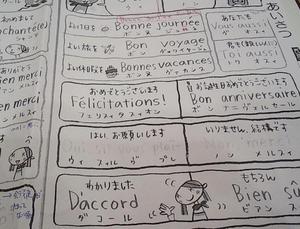 あいさつ
よい1日を Bonne journée
ボンヌ ジュルネ
よい旅を Bon voyage
ボン ヴォヤージュ
よい休日を Bonnes vacances
ボンヌ ヴァカンス
あなたも
Vous aussi
ヴ オスィ
Toi aussi
トワ オスィ
おめでとうございます
Félicitations!
フェリスィタスィオン
お誕生日おめでとうございます
Bon anniversaire
ボン アニヴェルセール
はい、お願いします
ウィ スィル ヴ プレ
いりません、結構です
ノン メルスィ
わかりました
D'accord
ダコール
もちろん
Bien sû
ビアン ス
はじめまして
chanté(e)
シャンテ
ien merci
アン メルスィ
en merci
メルスィ